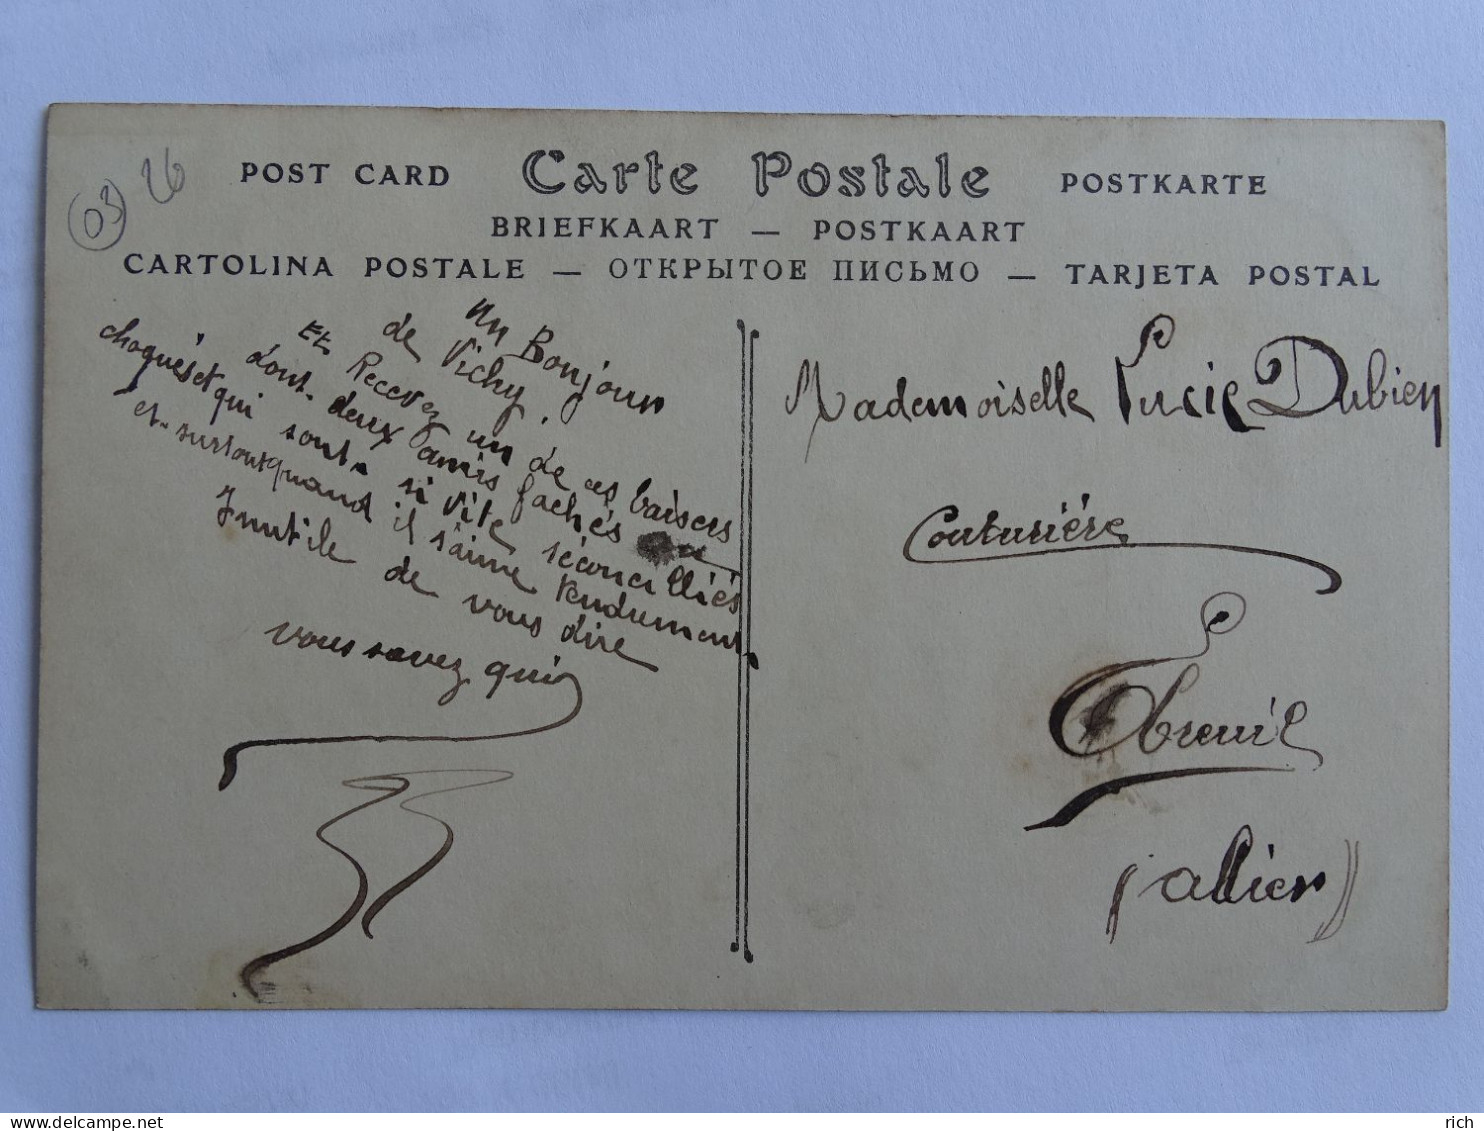 03 26
POST CARD Carte Postale POSTKARTE
BRIEFKAART — POSTKAART
CARTOLINA POSTALE — ОТКРЫТОЕ ПИСЬМО — TARJETA POSTAL
Un Bonjour
de Vichy.
Et Recevez un de ces baisers
dont deux amis fachés ou
choqués et qui sont si vite réconcilliés
et surtout quand il s'aime tendrement.
Inutile de vous dire
vous savez qui
Mademoiselle Lucie Dubien
Couturière
Ebreuil
(allier)
©picturesbank.net
rich